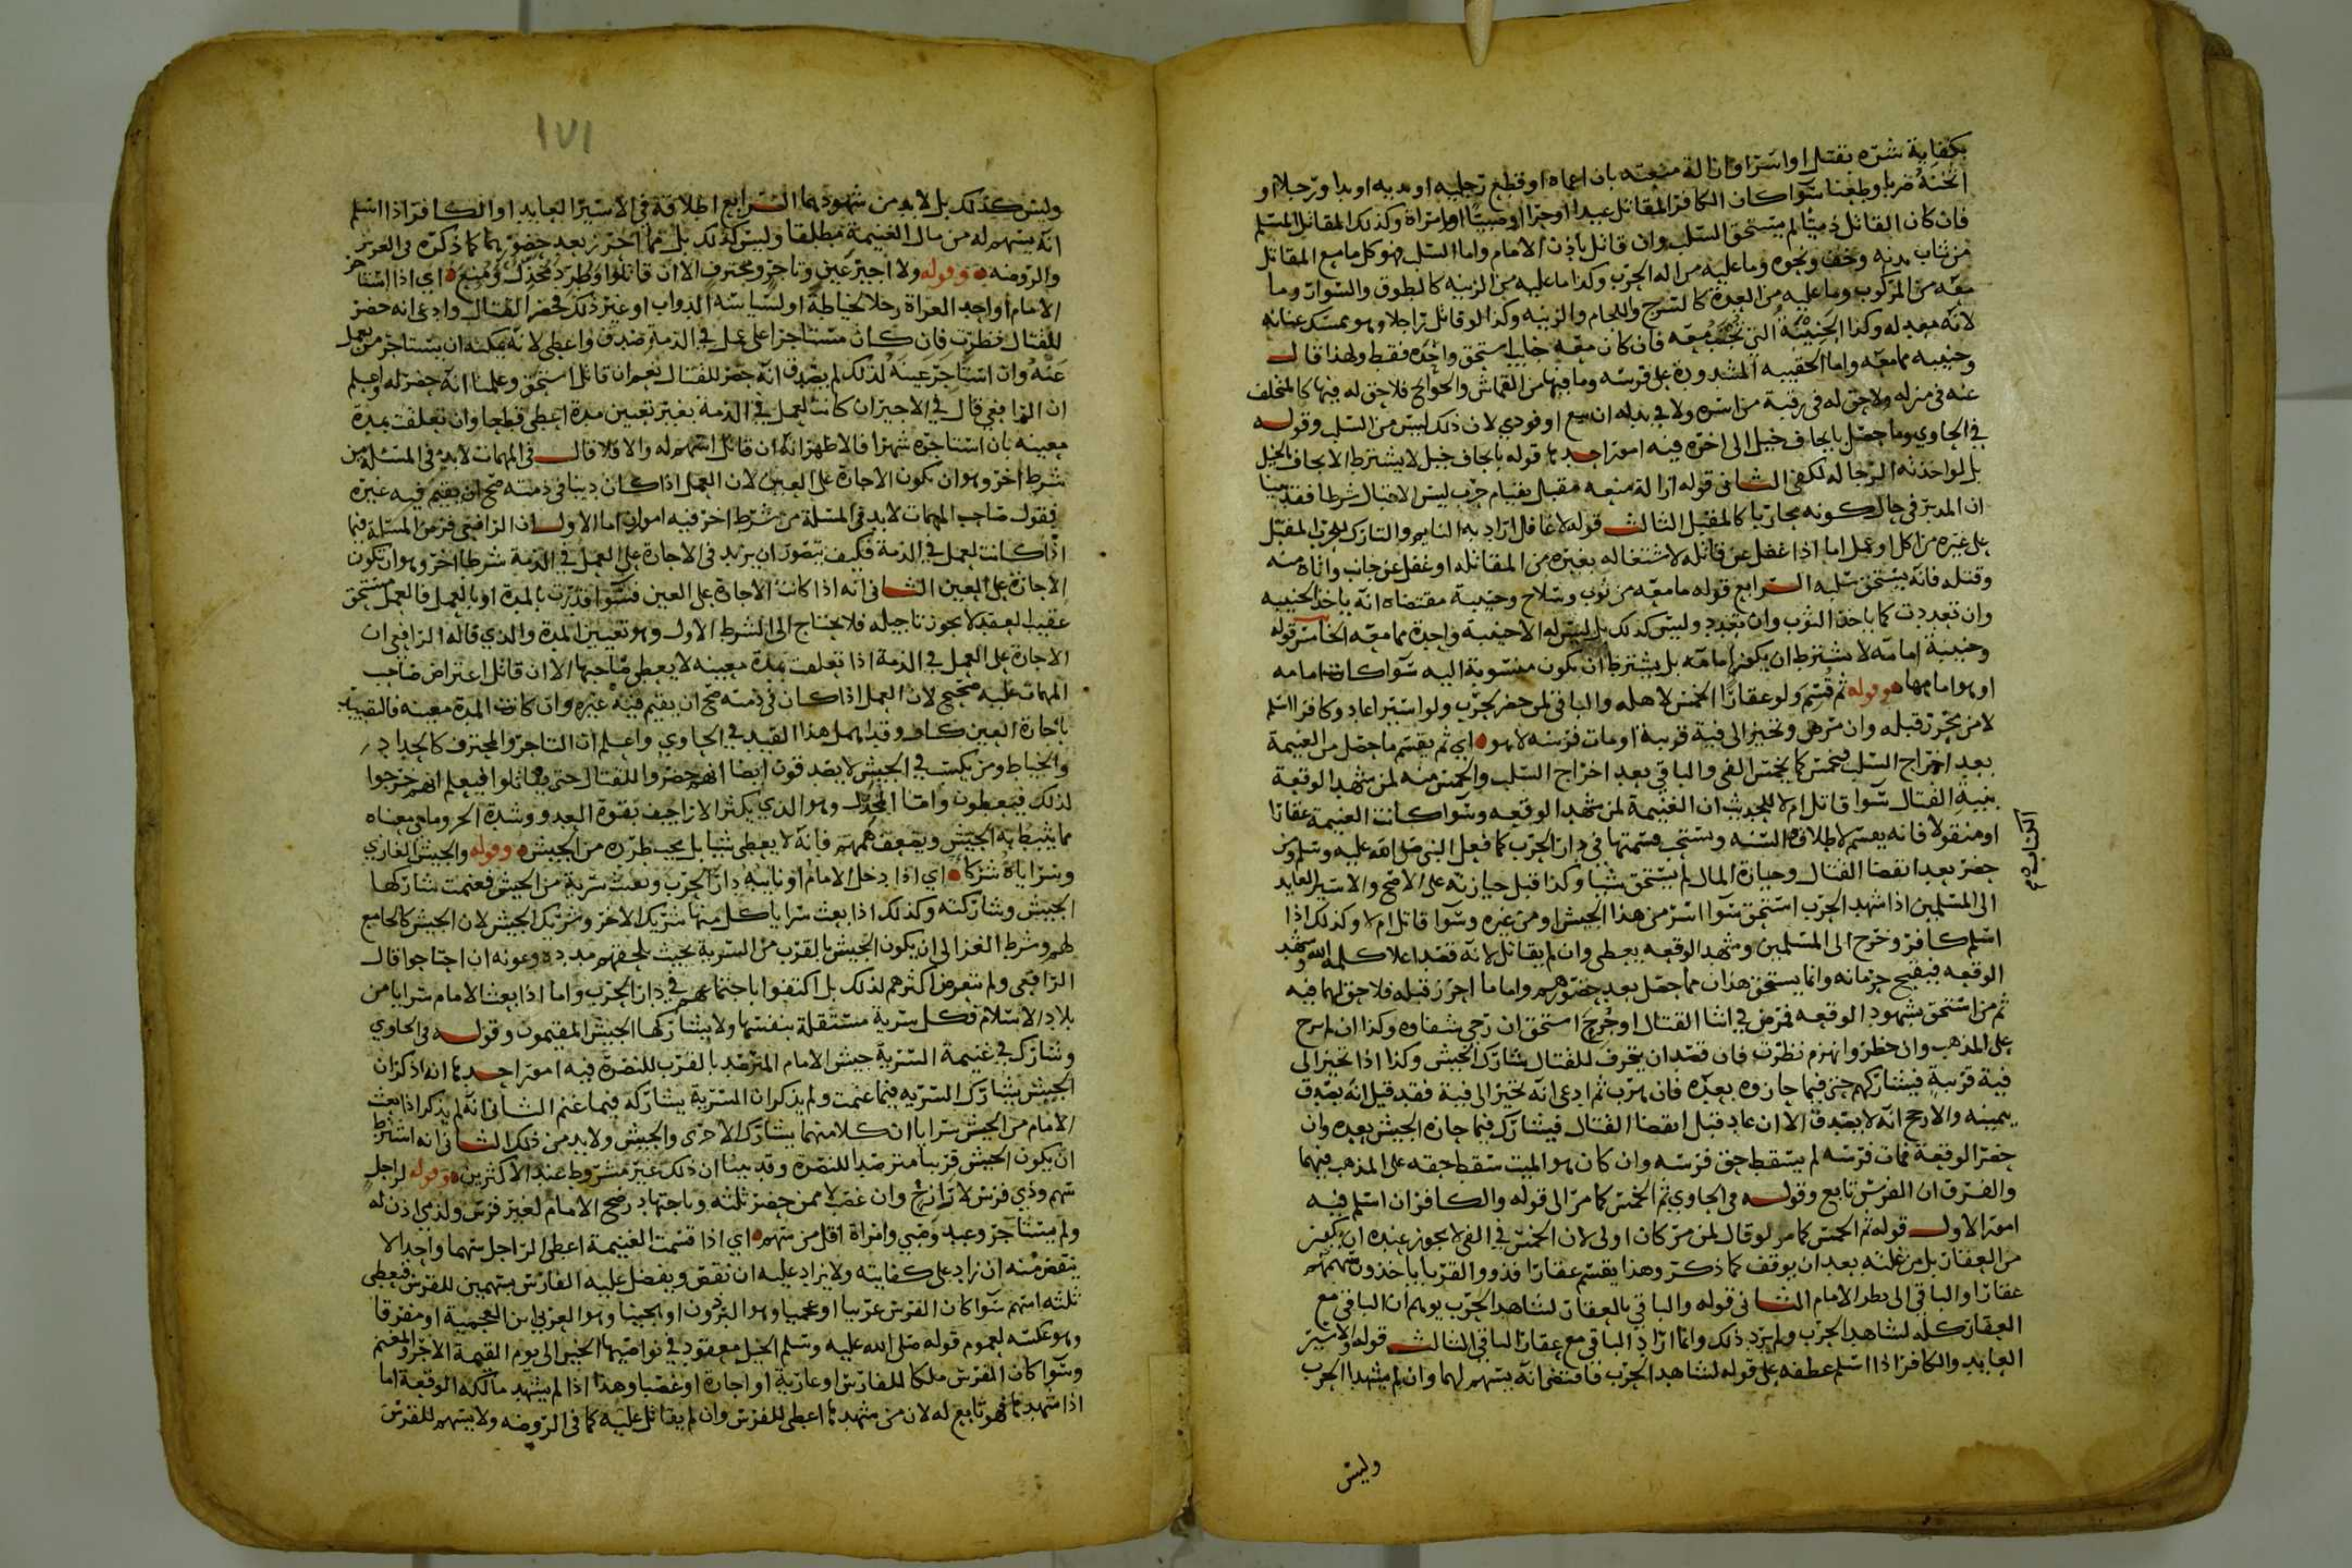 بكفاية شره بقتل او اسر او ازالة منعته بان اعماه او قطع رجليه او يديه او يدا ورجلا او
اثخنه ضربا وطعنا سوا كان الكافر المقاتل عبدا او حرا او صبيا او امراة وكذلك المقاتل المسلم
فان كان القاتل ذميا لم يستحق السلب وان قاتل باذن الامام واما السلب فهو كل ما مع المقاتل
من ثياب بدنه وخف ونحوه وما عليه من اله الحرب وكذا ما عليه من الزينه كالطوق والسوار وما
معه من المركوب وما عليه من العدة كالسرج واللجام والزينه وكذا لو قاتل راجلا وهو يمسك عنانه
لانه معد له وكذا الجنيبة التي تجنب معه فان كان معه جنايب استحق واحده فقط ولهذا قال
وجنيبه مما معه واما الحقيبه المشدودة على فرسه وما فيها من القماش والحوائج فلا حق له فيها كالمخلف
عنه في منزله ولا حق له في رقبة من اسره ولا في بدله ان بيع او فودي لان ذلك ليس من السلب وقوله
في الحاوي وما حصل بايجاف خيل الى اخره فيه امور احدها قوله بايجاف خيل لا يشترط الايجاف بالخيل
بل لو اخذته الرجاله لكفى الثاني قوله ازالة منعه مقبل بقيام حرب ليس الاقبال شرطا فقد بينا
ان المدبر في حال كونه محاربا كالمقبل الثالث قوله لا غافل اراد به النايم والتارك للحرب المقبل
على غيره من اكل او عمل اما اذا غفل عن قاتله لاشتغاله بغيره من المقاتله او غفل عن جانب واتاه منه
وقتله فانه يستحق سلبه الرابع قوله ما معه من ثوب وسلاح وجنيبة مقتضاه انه ياخذ الجنيبه
وان تعددت كما ياخذ الثوب وان تعدد وليس كذلك بل ليس له الا جنيبة واحدة مما معه الخامس قوله
وجنيبة امامه لا يشترط ان يكون امامه بل يشترط ان يكون منسوبة اليه سوا كانت امامه
او هو امامها وقوله ثم قسم ولو عقارا الخمس لاهله والباقي لمن حضر لحرب ولو اسير اعاد وكافرا اسلم
لا من تحرز قبله وان مرض وتحيز الى فية قريبة او مات فرسه لا هو اي ثم يقسم ما حصل من الغنيمة
بعد اخراج السلب فيخمس كما يخمس الفي والباقي بعد اخراج السلب والخمس منه لمن شهد الوقعة
بنية القتال سوا قاتل ام لا للحديث ان الغنيمة لمن شهد الوقعه وسوا كانت الغنيمة عقارا
او منقولا فانه يقسم لاطلاق السنه ويستحب قسمتها في دار الحرب كما فعل النبي صلى الله عليه وسلم ومن
حضر بعد انقضا القتال وحيازة المال لم يستحق شيا وكذا قبل حيازته على الاصح والاسير العايد
الى المسلمين اذا شهد الحرب استحق سوا اسر من هذا الجيش او من غيره وسوا قاتل ام لا وكذلك اذا
اسلم كافر وخرج الى المسلمين وشهد الوقعه يعطى وان لم يقاتل لانه قصد اعلا كلمة الله وشهد
الوقعه فيقبح حرمانه وانما يستحق هذان مما حصل بعد حضورهم واما ما احرز قبله فلا حق لهما فيه
ثم من استحق بشهود الوقعه لو مرض في اثنا القتال او جرح استحق ان رجي شفاوه وكذا ان لم يرج
على المذهب وان حضر وانهزم نظرت فان قصد ان يتحرف للقتال شارك الجيش وكذا اذا تحيز الى
فية قريبة فيشاركهم حتى فيما حازوه بعده فان هرب ثم ادعى انه تحيز الى فية فقد قيل انه يصدق
بيمينه والارجح انه لا يصدق الا ان عاد قبل انقضا القتال فيشارك فيما حازه الجيش بعده وان
حضر الوقعة فمات فرسه لم يسقط حق فرسه وان كان هو الميت سقط حقه على المذهب فيهما
والفرق ان الفرس تابع وقوله في الحاوي ثم الخمس كما مر الى قوله والكافر ان اسلم فيه
امور الاول قوله ثم الخمس كما مر لو قال لمن مر كان اولى لان الخمس في الفي لا يجوز عنده ان يكون
من العقار بل من غلته بعد ان يوقف كما ذكر وهذا يقسم عقارا فذوو القربا ياخذون سهمهم
عقارا والباقي الى نظر الامام الثاني قوله والباقي بالعقار لشاهد الحرب يوهم ان الباقي مع
العقار كله لشاهد الحرب ولم يرد ذلك وانما اراد الباقي مع عقار الباقي الثالث قوله والاسير
العايد والكافر اذا اسلم عطفه على قوله لشاهد الحرب فاقتضى انه يسهم لهما وان لم يشهدا الحرب
وليس
١٧١
وليس كذلك بل لابد من شهودهما الرابع اطلاقه في الاسير العايد او الكافر اذا اسلم
انه يسهم له من مال الغنيمة مطلقا وليس كذلك بل مما احرز بعد حضورهما كما ذكره في العزيز
والروضه وقوله ولا اجير عين وتاجر ومحترف الا ان قاتلوا وطرد مخذل ومنع اي اذا استاجر
الامام او احد الغزاة رجلا لخياطة او لسياسة الدواب او غير ذلك فحضر القتال وادعى انه حضر
للقتال نظرت فان كان مستاجرا على عمل في الذمة صدق واعطي لانه يمكنه ان يستاجر من يعمل
عنه وان استاجر عينه لذلك لم يصدق انه حضر للقتال نعم ان قاتل استحق وعلمنا انه حضر له واعلم
ان الرافعي قال في الاجير ان كانت لعمل في الذمة بغير تعيين مدة اعطي قطعا وان تعلقت بمدة
معينه بان استاجره شهرا فالاظهر انه ان قاتل اسهم له والا فلا قال في المهمات لابد في المسئلة من
شرط اخر وهو ان تكون الاجارة على العين لان العمل اذا كان دينا في ذمته صح ان يقيم فيه غيره
فقول صاحب المهمات لابد في المسئلة من شرط اخر فيه امران اما الاول ان الرافعي فرض المسئلة فيما
اذا كانت لعمل في الذمة فكيف يتصور ان يريد في الاجارة على العمل في الذمة شرطا اخر وهو ان تكون
الاجارة على العين الثاني انه اذا كانت الاجارة على العين فسوا قدرت بالمدة او بالعمل فالعمل مستحق
عقيب العقد لا يجوز تاجيله فلا يحتاج الى الشرط الاول وهو تعيين المدة والذي قاله الرافعي ان
الاجارة على العمل في الذمة اذا تعلقت بمدة معينه لا يعطى صاحبها الا ان قاتل اعتراض صاحب
المهمات عليه صحيح لان العمل اذا كان في ذمته صح ان يقيم فيه غيره وان كانت المدة معينه فالتقييد
باجارة العين كاف وقد اهمل هذا القيد في الحاوي واعلم ان التاجر والمحترف كالحداد
والخياط ومن يكتسب في الجيش لا يصدقون ايضا انهم حضروا للقتال حتى يقاتلوا فيعلم انهم خرجوا
لذلك فيعطون واما المخذل وهو الذي يكثر الاراجيف بقوة العدو وشدة الحر وما في معناه
مما يثبط به الجيش ويضعف هممهم فانه لا يعطى شيا بل يجب طرده من الجيش وقوله والجيش الغازي
وسراياه شركا اي اذا دخل الامام او نايبه دار الحرب وبعث سرية من الجيش فغنمت شاركها
الجيش وشاركته وكذلك اذا بعث سرايا كل منها شريك الاخر وشريك الجيش لان الجيش كالجامع
لهم وشرط الغزالي ان يكون الجيش بالقرب من السرية بحيث يلحقهم مدده وعونه ان احتاجوا قال
الرافعي ولم يتعرض اكثرهم لذلك بل اكتفوا باجتماعهم في دار الحرب واما اذا بعث الامام سرايا من
بلاد الاسلام فكل سرية مستقلة بنفسها ولا يشاركها الجيش المقيمون وقوله في الحاوي
وشارك في غنيمة السرية جيش الامام المترصد بالقرب للنصرة فيه امور احدها انه ذكر ان
الجيش يشارك السريه فيما غنمت ولم يذكر ان السرية يشاركه فيما غنم الثاني انه لم يذكر اذا بعث
الامام من الجيش سرايا ان كلا منهما يشارك الاخرى والجيش ولابد من ذلك الثالث انه اشترط
ان يكون الجيش قريبا مترصدا للنصرة وقد بينا ان ذلك غير مشروط عند الاكثرين وقوله لراجل
سهم وذي فرس لا رازح وان غصب لا ممن حضر ثلثه وباجتهاد رضخ الامام لغير فرس ولذمي اذن له
ولم يستاجر وعبد وصبي وامراة اقل من سهم اي اذا قسمت الغنيمة اعطى الراجل سهما واحدا لا
ينقص منه ان زاد على كفايته ولا يزاد عليه ان نقص ويفضل عليه الفارس بسهمين للفرس فيعطى
ثلثه اسهم سوا كان الفرس عربيا او عجميا وهو البرذون او هجينا وهو العربي ابن العجمية او مقرفا
وهو عكسه لعموم قوله صلى الله عليه وسلم الخيل معقود في نواصيها الخير الى يوم القيمة الاجر والمغنم
وسوا كان الفرس ملكا للفارس او عارية او اجارة او غصبا وهذا اذا لم يشهد مالكه الوقعة اما
اذا شهدها فهو تابع له لان من شهدها اعطي للفرس وان لم يقاتل عليه كما في الروضه ولا يسهم للفرس